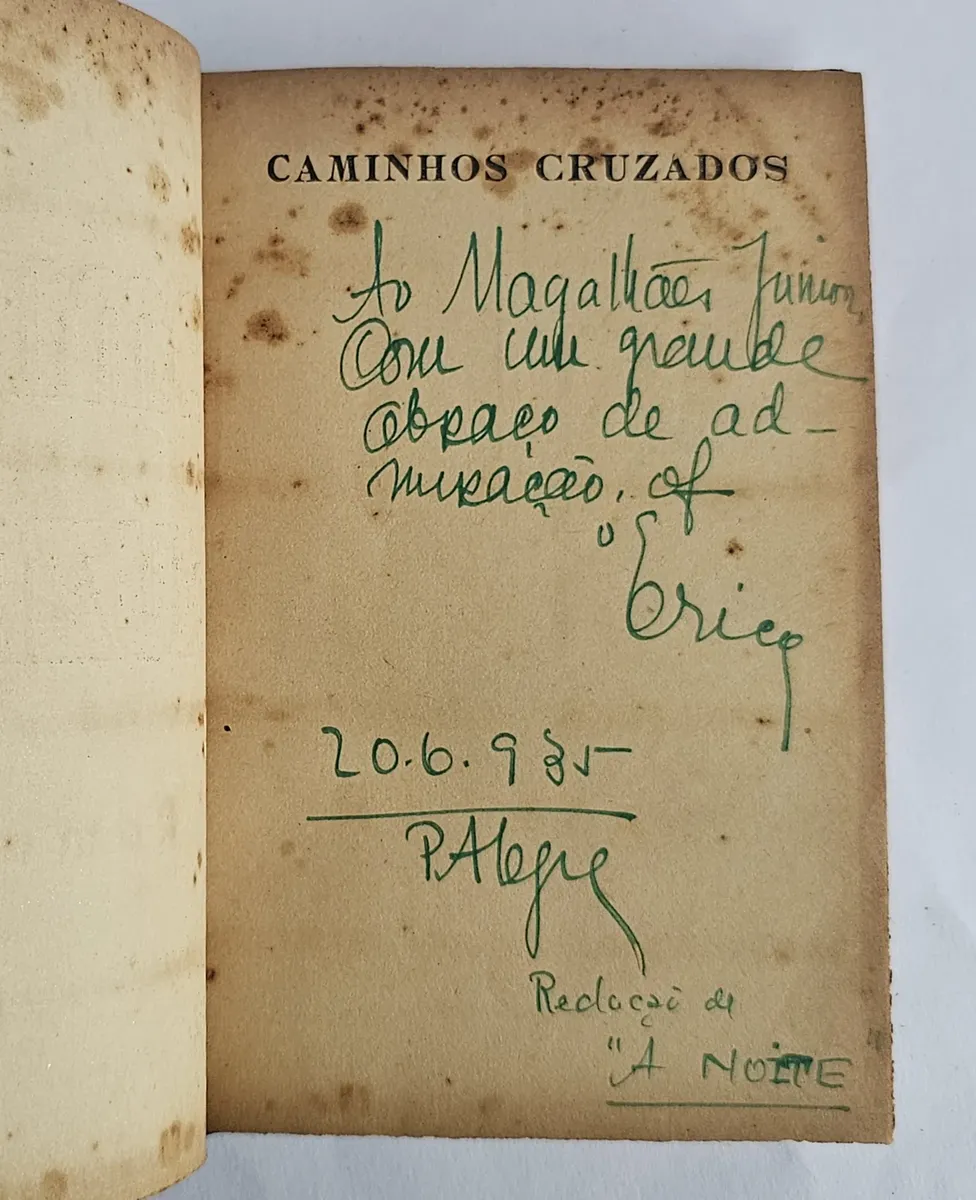 CAMINHOS CRUZADOS
Ao Magalhães Junior,
Com um grande
abraço de ad-
miração, of
"Erico
20.6.935
P. Alegre
Redação de
"A NOITE"